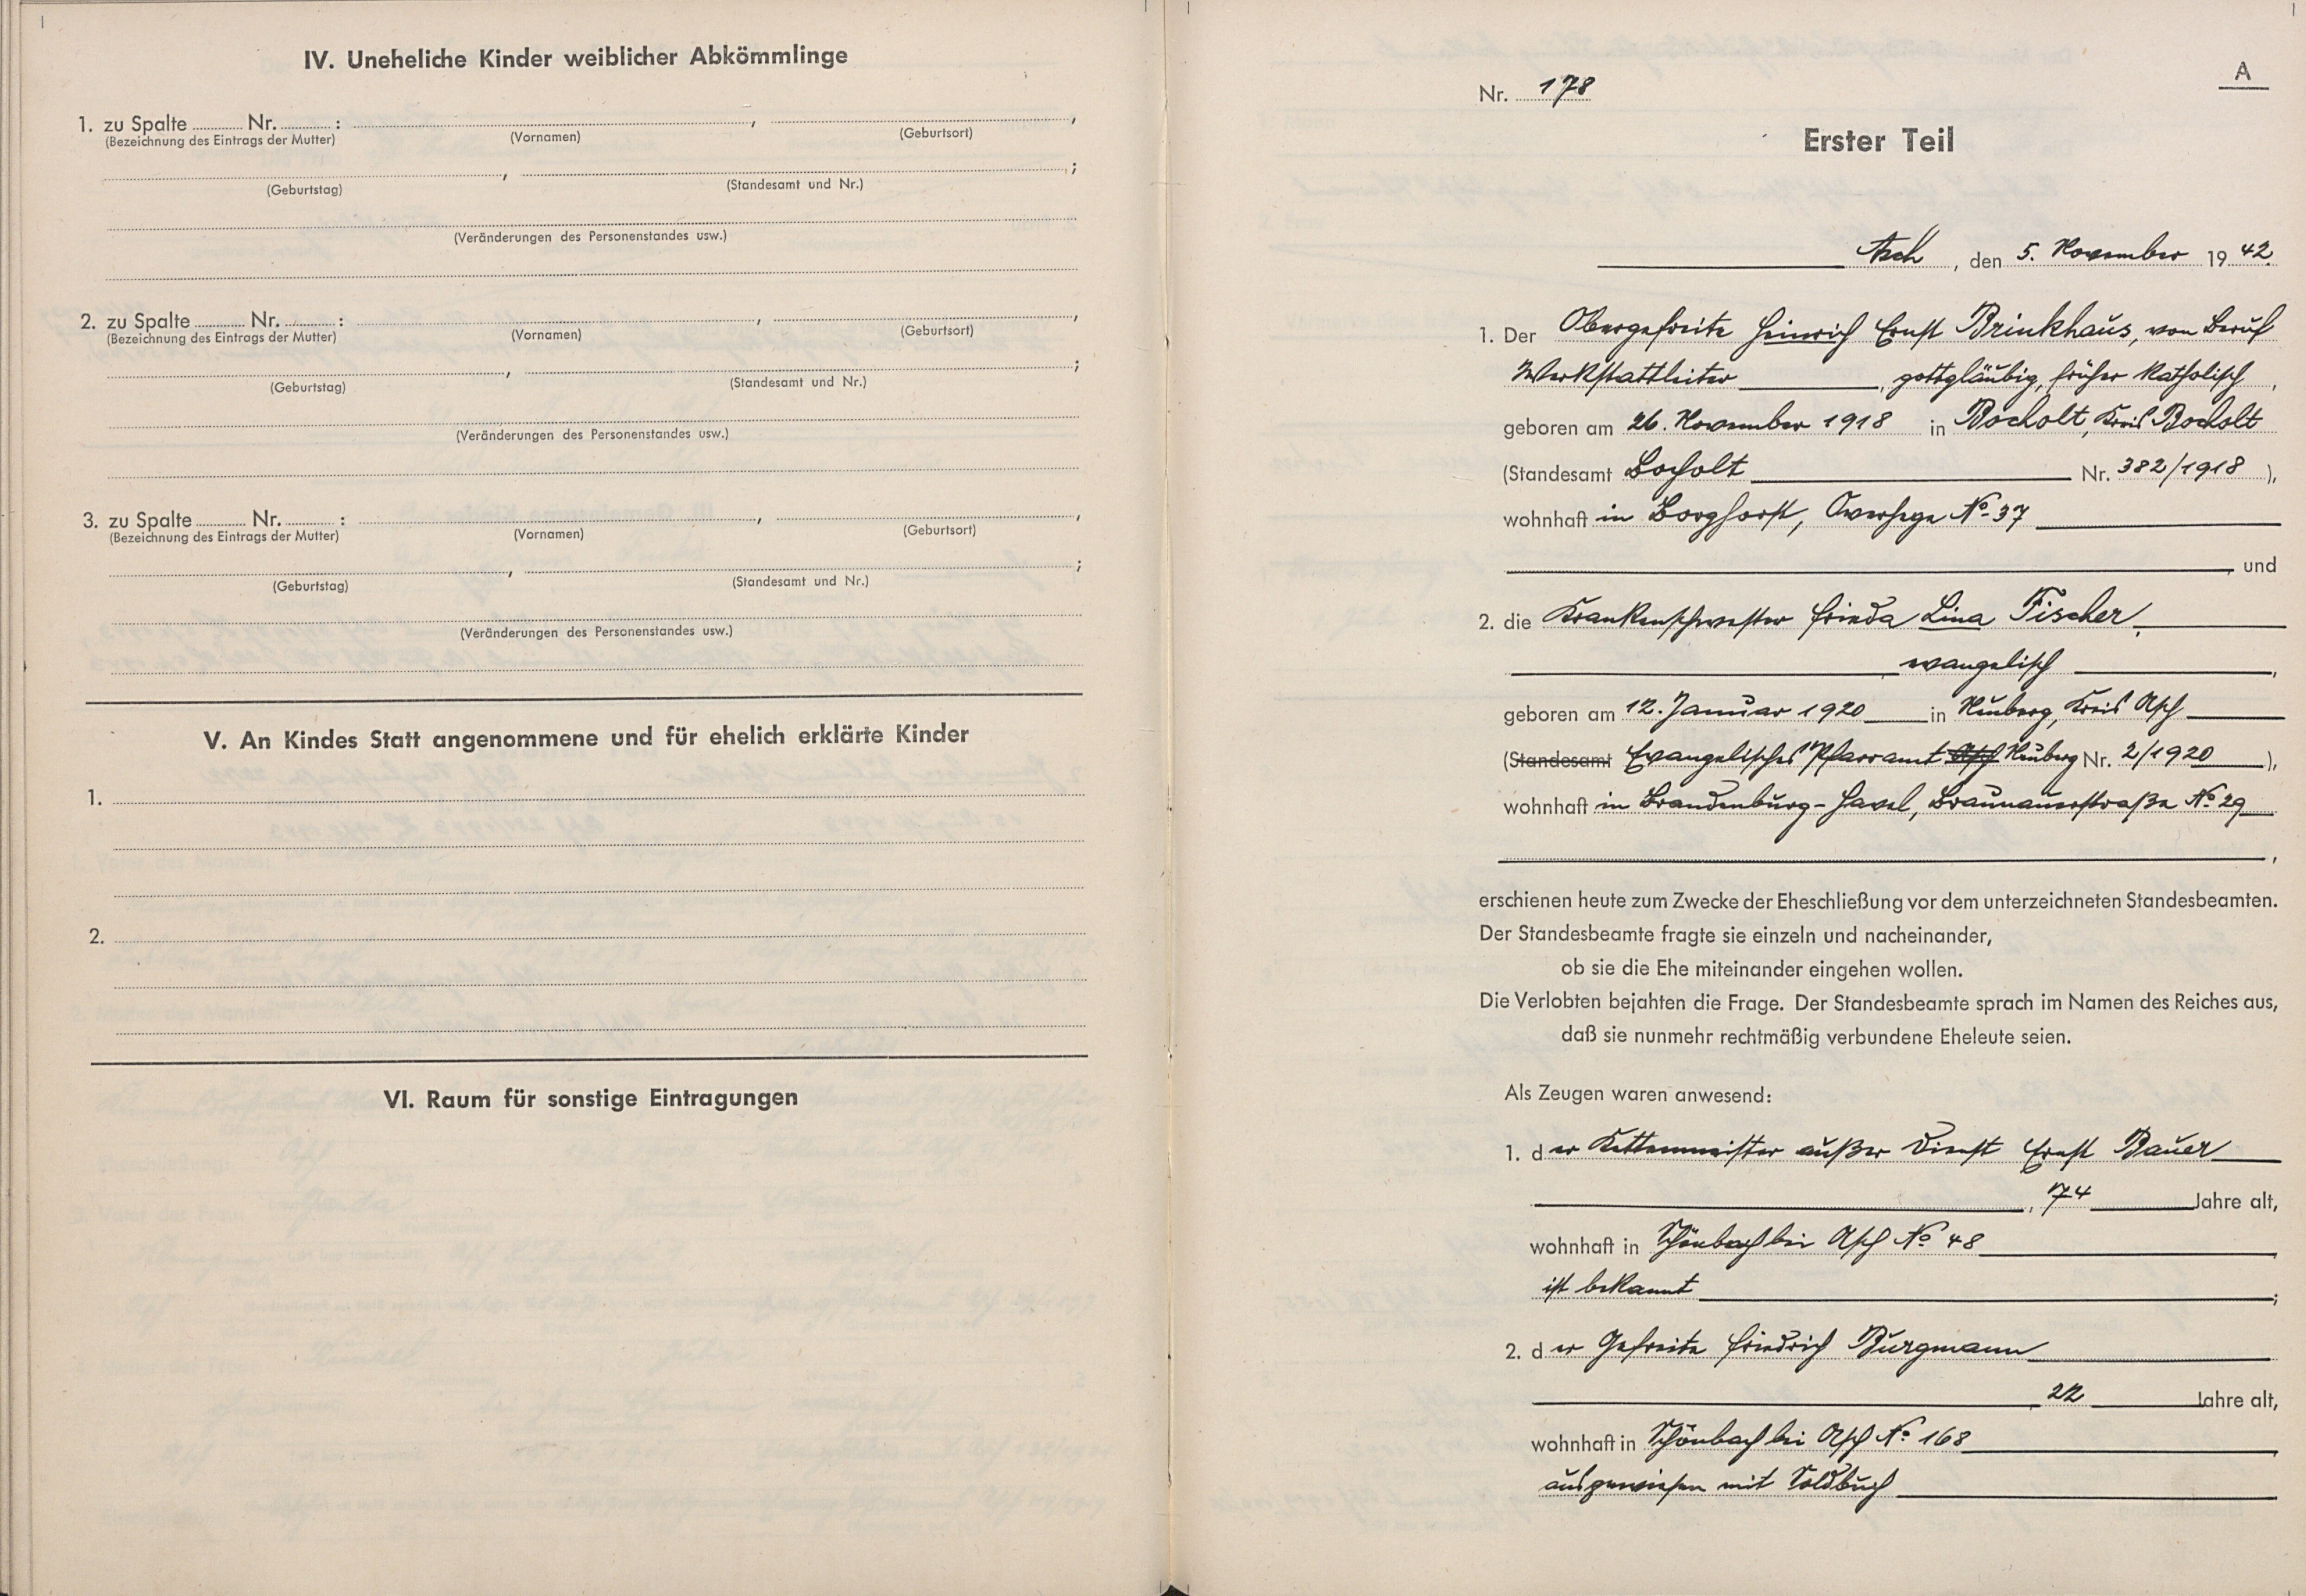 IV. Uneheliche Kinder weiblicher Abkömmlinge
1. zu Spalte ........ Nr. ........ : ........, ........,
(Bezeichnung des Eintrags der Mutter) (Vornamen) (Geburtsort)
........, ........;
(Geburtstag) (Standesamt und Nr.)
(Veränderungen des Personenstandes usw.)
2. zu Spalte ........ Nr. ........ : ........, ........,
(Bezeichnung des Eintrags der Mutter) (Vornamen) (Geburtsort)
........, ........;
(Geburtstag) (Standesamt und Nr.)
(Veränderungen des Personenstandes usw.)
3. zu Spalte ........ Nr. ........ : ........, ........,
(Bezeichnung des Eintrags der Mutter) (Vornamen) (Geburtsort)
........, ........;
(Geburtstag) (Standesamt und Nr.)
(Veränderungen des Personenstandes usw.)
V. An Kindes Statt angenommene und für ehelich erklärte Kinder
1.
2.
VI. Raum für sonstige Eintragungen
A
Nr. 178
Erster Teil
Asch, den 5. November 1942.
1. Der Obergefreite Heinrich Ernst Brinkhaus, von Beruf
Werkstattleiter, gottgläubig, früher katholisch,
geboren am 26. November 1918 in Bocholt, Kreis Bocholt
(Standesamt Bocholt Nr. 382/1918),
wohnhaft in Borghorst, Oversege No 37
, und
2. die Krankenschwester Frieda Lina Fischer,
evangelisch,
geboren am 12. Januar 1920 in Neuberg, Kreis Asch
(Standesamt Evangelisches Pfarramt Asch Neuberg Nr. 2/1920),
wohnhaft in Brandenburg-Havel, Braunauerstraße No 29
,
erschienen heute zum Zwecke der Eheschließung vor dem unterzeichneten Standesbeamten.
Der Standesbeamte fragte sie einzeln und nacheinander,
ob sie die Ehe miteinander eingehen wollen.
Die Verlobten bejahten die Frage. Der Standesbeamte sprach im Namen des Reiches aus,
daß sie nunmehr rechtmäßig verbundene Eheleute seien.
Als Zeugen waren anwesend:
1. der außer Dienst Ernst Bauer
, 74 Jahre alt,
wohnhaft in Schönbach bei Asch No 48
ist bekannt;
2. der Gefreite Friedrich Burgmann
22 Jahre alt,
wohnhaft in Schönbach bei Asch No 168
ausgewiesen mit Soldbuch